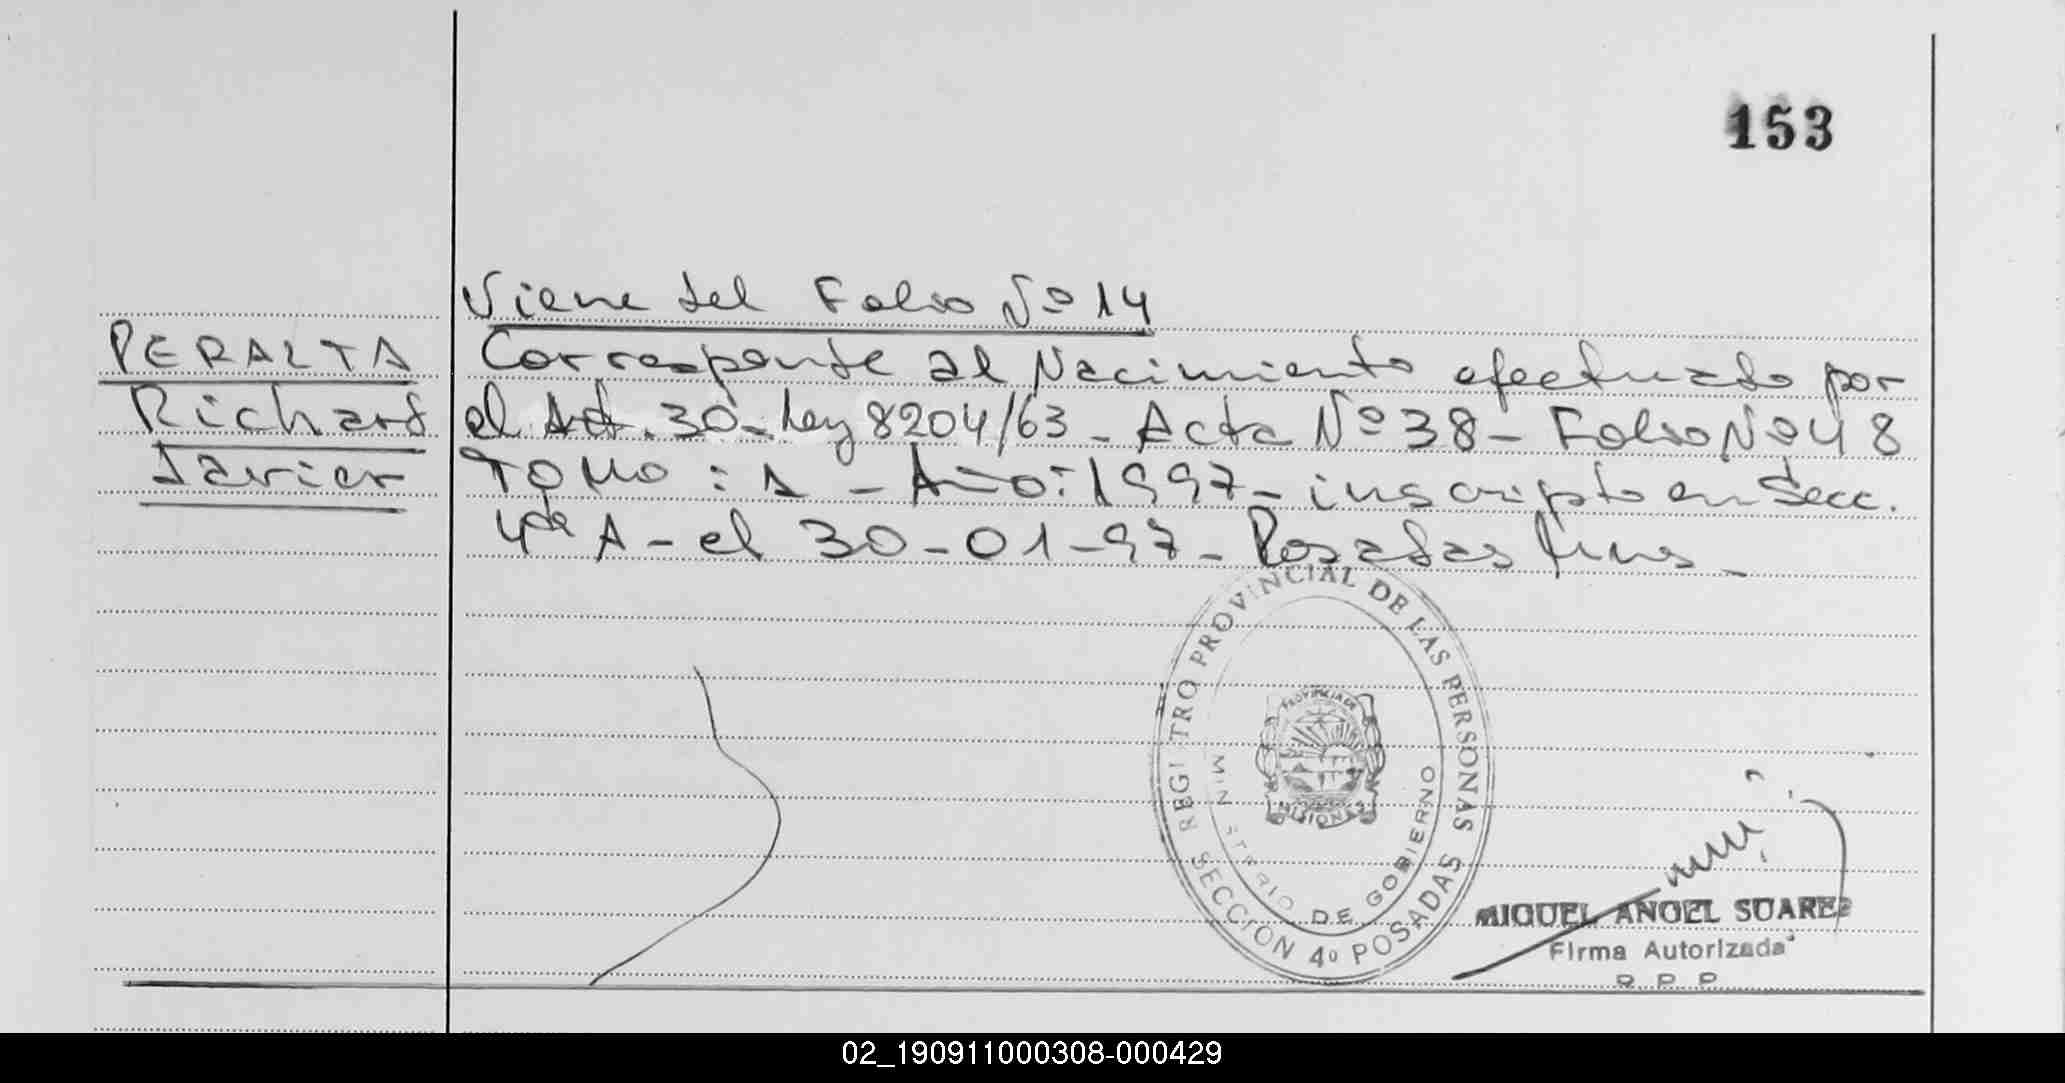 153
Viene del Folio Nº 14
PERALTA
Richard
Javier
Corresponde al Nacimiento efectuado por
el Art. 30 - Ley 8204/63 - Acta Nº 38 - Folio Nº 48
TOMO : 1 - Año: 1997 - inscripto en Secc.
4ta A - el 30-01-97 - Posadas
REGISTRO PROVINCIAL DE LAS PERSONAS
MINISTERIO DE GOBIERNO
PROVINCIA DE
MISIONES
SECCION 4º POSADAS
MIGUEL ANGEL SUAREZ
Firma Autorizada
R. P. P.
02_190911000308-000429